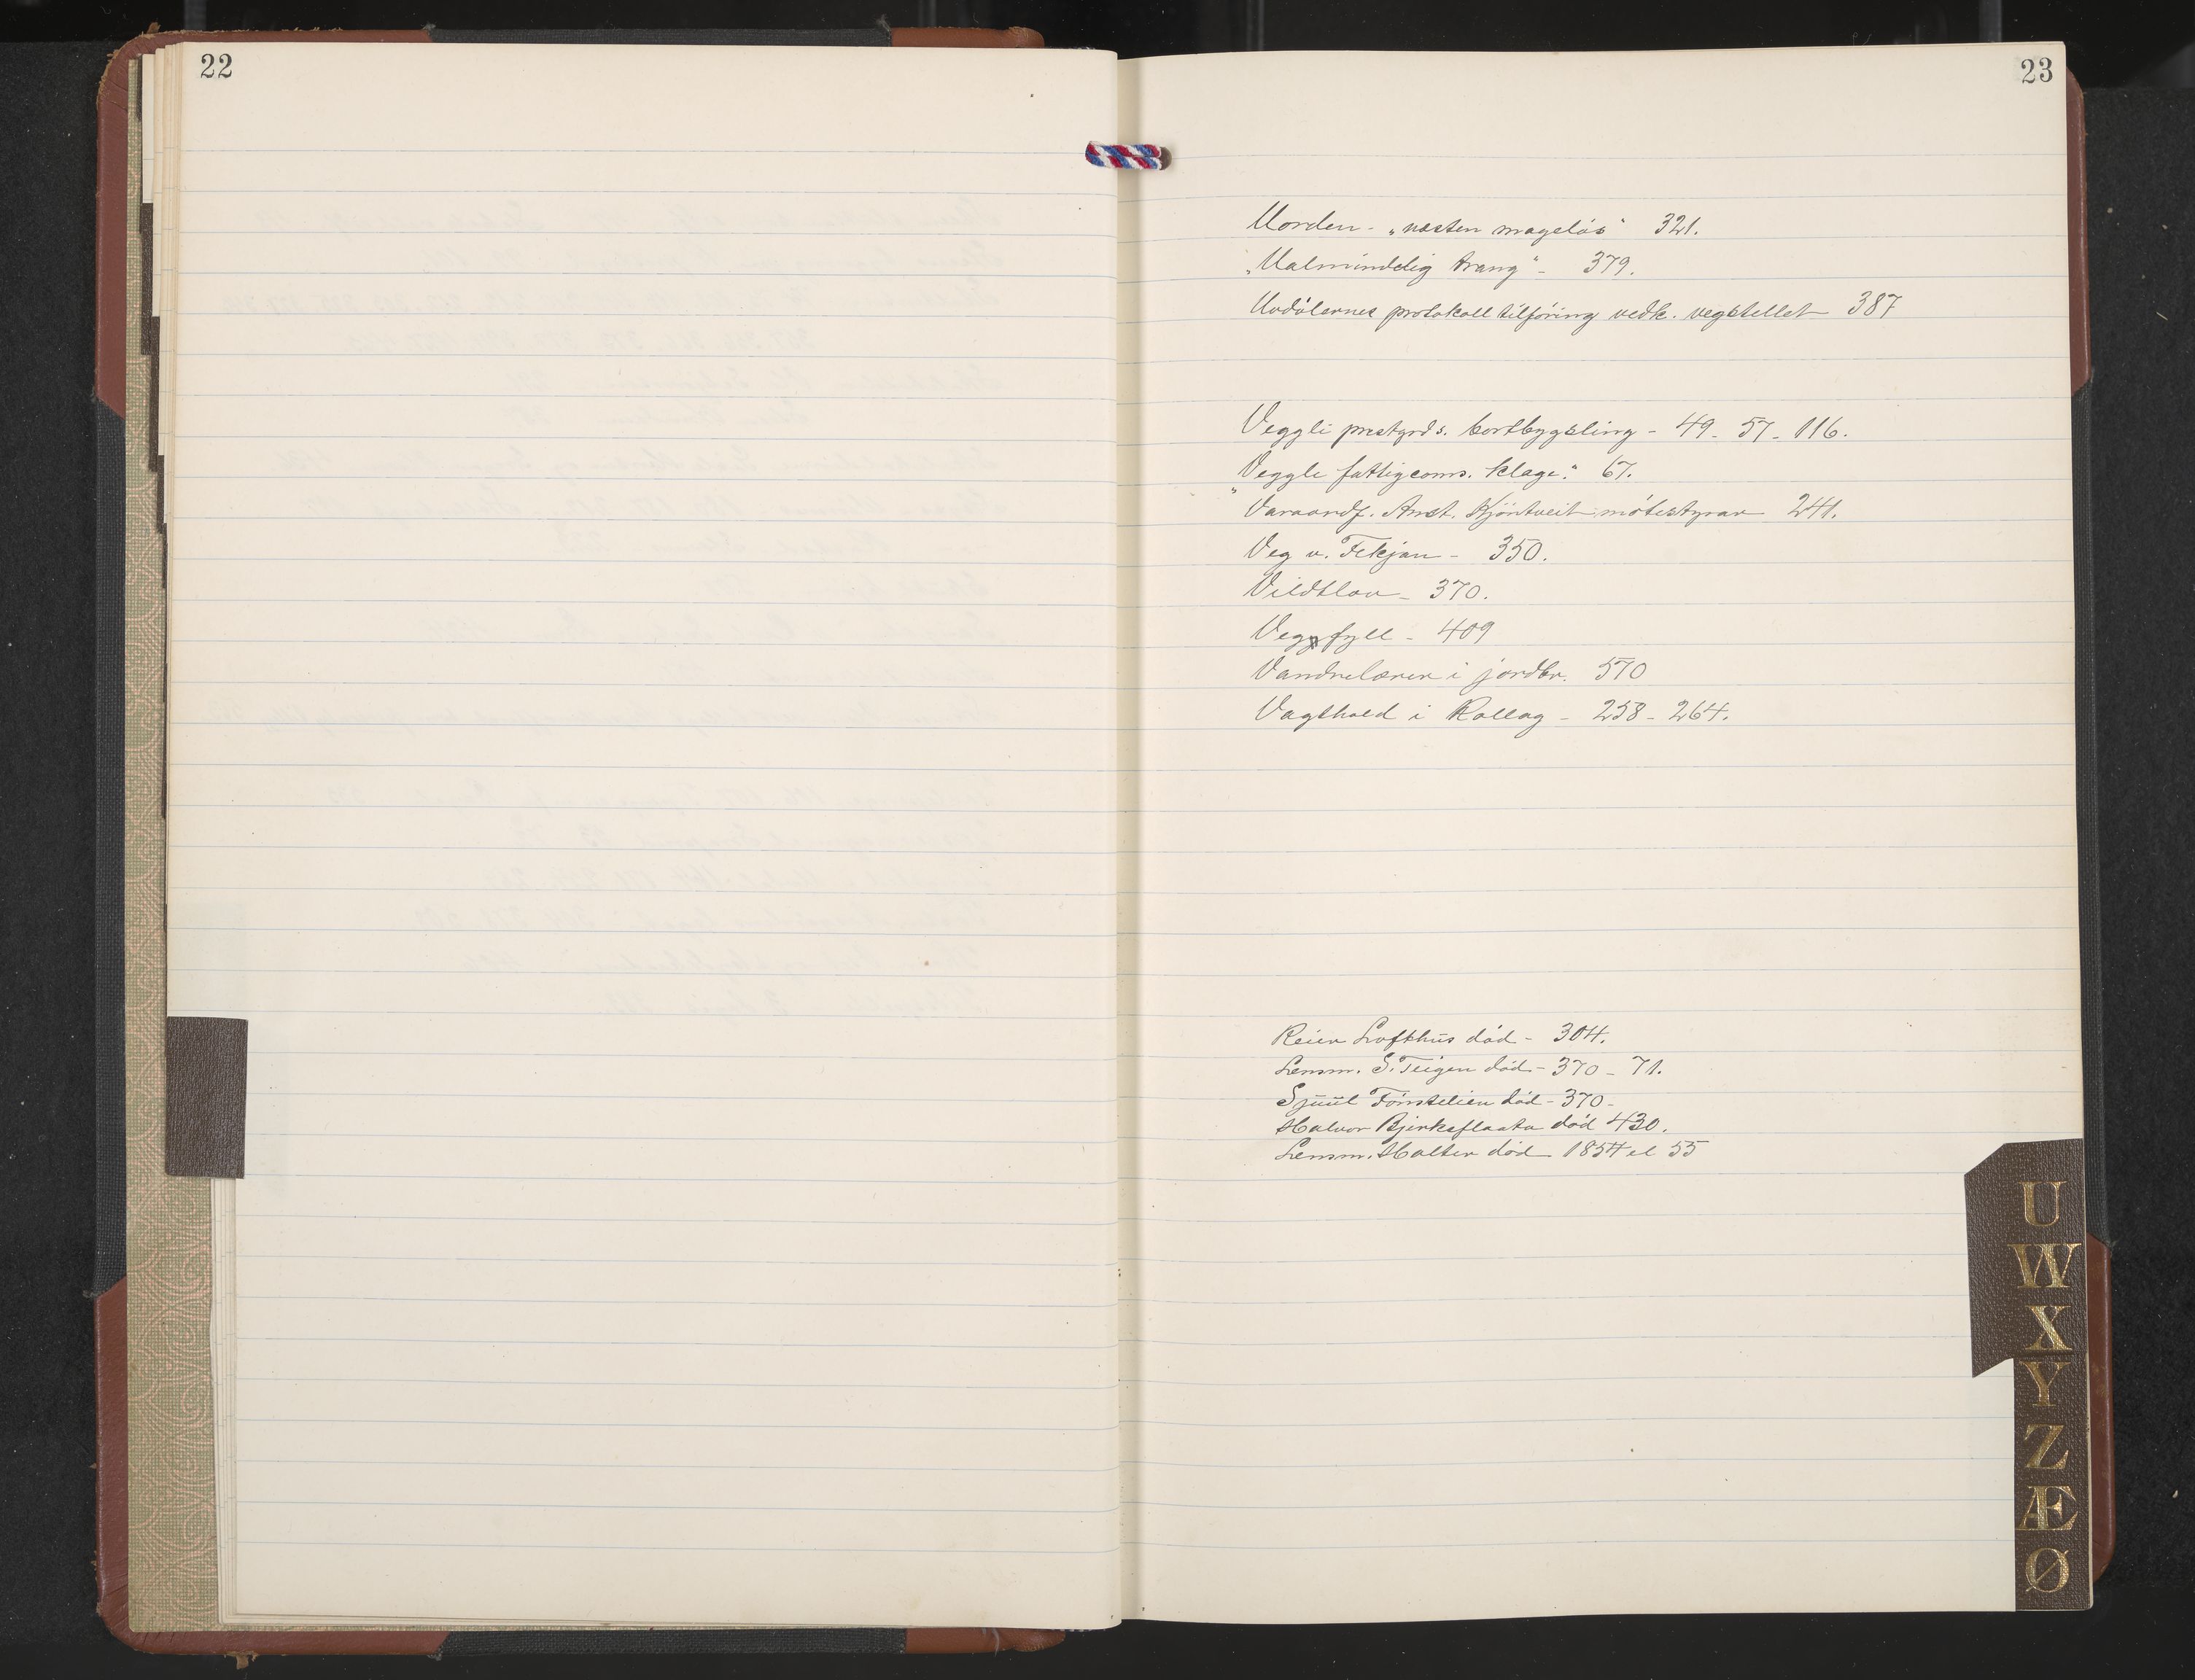 22
23
Uorden - „næsten mageløs" 321.
„Ualmindelig trang" - 379.
Uvdølernes protokoll tilføring vedk. vegstellet 387
Veggli prestgrds. bortbygsling - 49 - 57 - 116.
„Veggli fattigcoms. klage." 67.
Varaordf. Anst. Kjøntveit møtestyrar 241.
Veg v. Fekjan - 350.
Vildtlov - 370.
Vegfyll - 409
Vandrelærer i jordbr. 570
Vagthold i Rollag - 258 - 264.
Reier Lofthus død - 304.
Lensm. S. Teigen død - 370 - 71.
Sjuul død - 370 -
Halvor Bjerkeflaata død 430.
Lensm. Halter død 1854 el 55
U
W
X
Y
Z
Æ
Ø